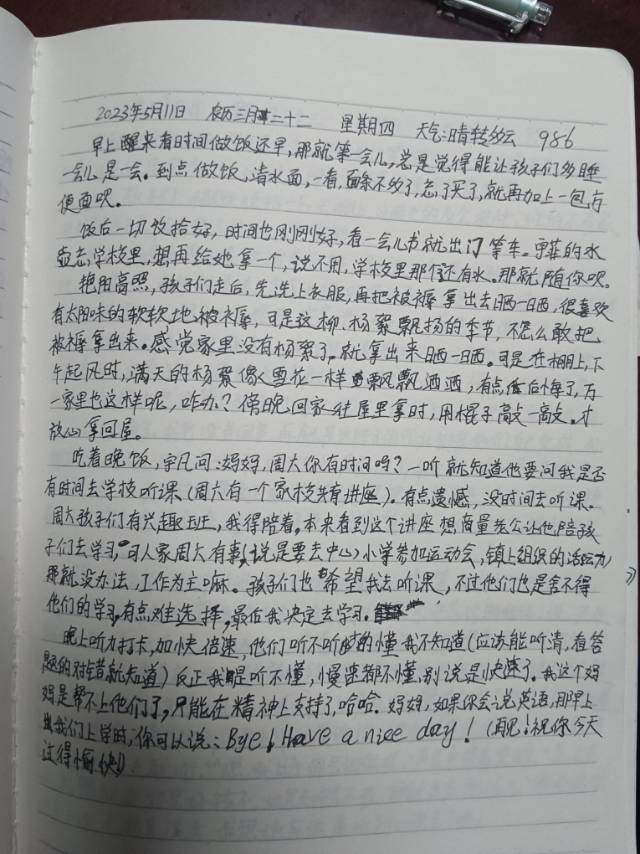 2023年5月11日 农历三月二十二 星期四 天气:晴转多云 986
早上醒来看时间做饭还早,那就等一会儿,总是觉得能让孩子们多睡
一会儿是一会。到点做饭,清水面,一看,面条不多了,忘了买了,就再加上一包方
便面呗。
饭后一切收拾好,时间也刚刚好,看一会儿书就出门等车。宇菲的水
壶忘学校里,想再给她拿一个,说不用,学校里那个还有水。那就随你呗。
艳阳高照,孩子们走后,先洗上衣服,再把被褥拿出去晒一晒,很喜欢
有太阳味的软软地被褥,可是这柳、杨絮飘扬的季节,不怎么敢把
被褥拿出来。感觉家里没有杨絮了,就拿出来晒一晒。可是在棚上,下
午起风时,满天的杨絮像雪花一样飘飘洒洒,有点后悔了,万
一家里也这样呢,咋办?傍晚回家往屋里拿时,用棍子敲一敲。才
放心拿回屋。
吃着晚饭,宇凡问:妈妈,周六你有时间吗?一听就知道他要问我是否
有时间去学校听课(周六有一个家校共育讲座)。有点遗憾,没时间去听课。
周六孩子们有兴趣班,我得陪着,本来看到这个讲座想商量老公让他陪孩
子们去学习,可人家周六有事(说是要去中心小学参加运动会,镇上组织的活动)
那就没办法,工作为主嘛。孩子们也希望我去听课,不过他们也是舍不得
他们的学习,有点难选择,最后我决定去学习。
晚上听力打卡,加快倍速,他们听不听的懂我不知道(应该能听清,看答
题的对错就知道)反正我是听不懂,慢速都不懂,别说是快速了。我这个妈
妈是帮不上他们了,只能在精神上支持了,哈哈。妈妈,如果你会说英语,那早上
我们上学时,你可以说:Bye! Have a nice day!(再见!祝你今天
过得愉快!)